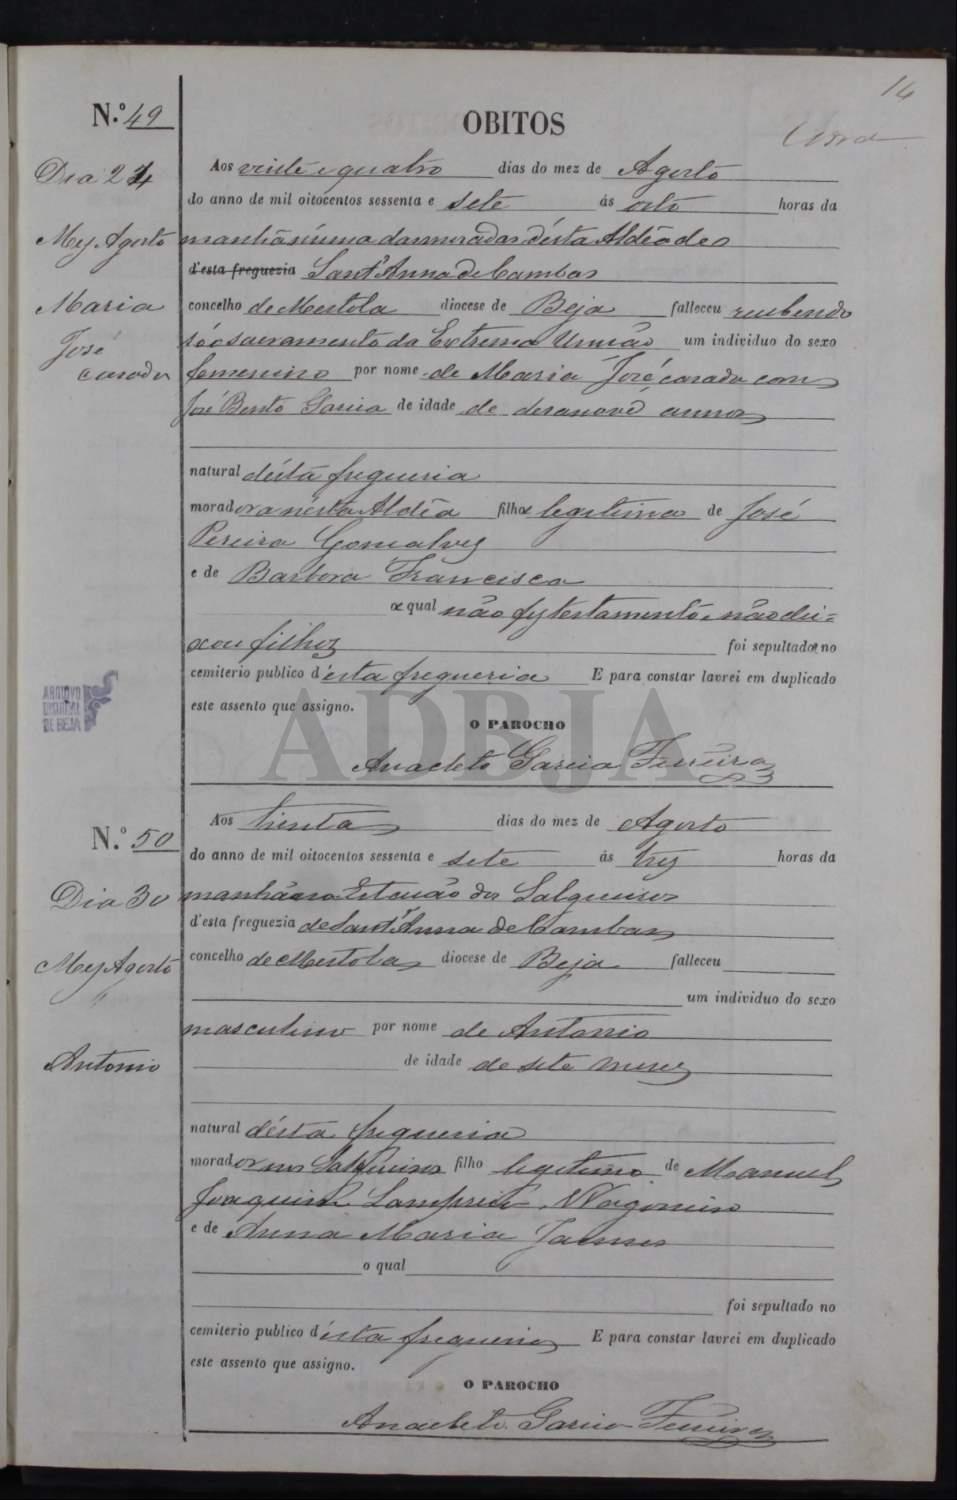 14
N.º 49
OBITOS
Dia 24
Aos vinte e quatro dias do mez de Agosto
do anno de mil oitocentos sessenta e sete ás oito horas da
Mez Agosto
manhã n'uma das moradas d'ésta Aldêa de
d'esta freguezia Sant'Anna de Cambas
Maria
concelho de Mertola diocese de Beja falleceu recebendo
José
só o sacramento da Extrema Unção um individuo do sexo
casada
femenino por nome de Maria José casada com
José Bento Garcia de idade de desanove annos
natural d'ésta freguesia
moradora n'ésta Aldêa filha legitima de José
Pereira Gonçalves
e de Barbora Francisca
a qual não fez testamento, não dei=
xou filhos foi sepultada no
cemiterio publico d'ésta freguesia E para constar lavrei em duplicado
este assento que assigno.
ARQUIVO
DISTRITAL
DE BEJA
ADBJA
O PAROCHO
Anacleto Garcia Ferreira
N.º 50
Aos trinta dias do mez de Agosto
do anno de mil oitocentos sessenta e sete ás tres horas da
Dia 30
manhã dos Salgueiros
d'esta freguezia de Sant'Anna de Cambas
Mez Agosto
concelho de Mertola diocese de Beja falleceu
um individuo do sexo
masculino por nome de Antonio
Antonio
de idade de sete meses
natural d'ésta freguesia
morador nos Salgueiros filho legitimo de Manuel
Joaquim Lampreia
e de Anna Maria
o qual
foi sepultado no
cemiterio publico d'ésta freguesia E para constar lavrei em duplicado
este assento que assigno.
O PAROCHO
Anacleto Garcia Ferreira